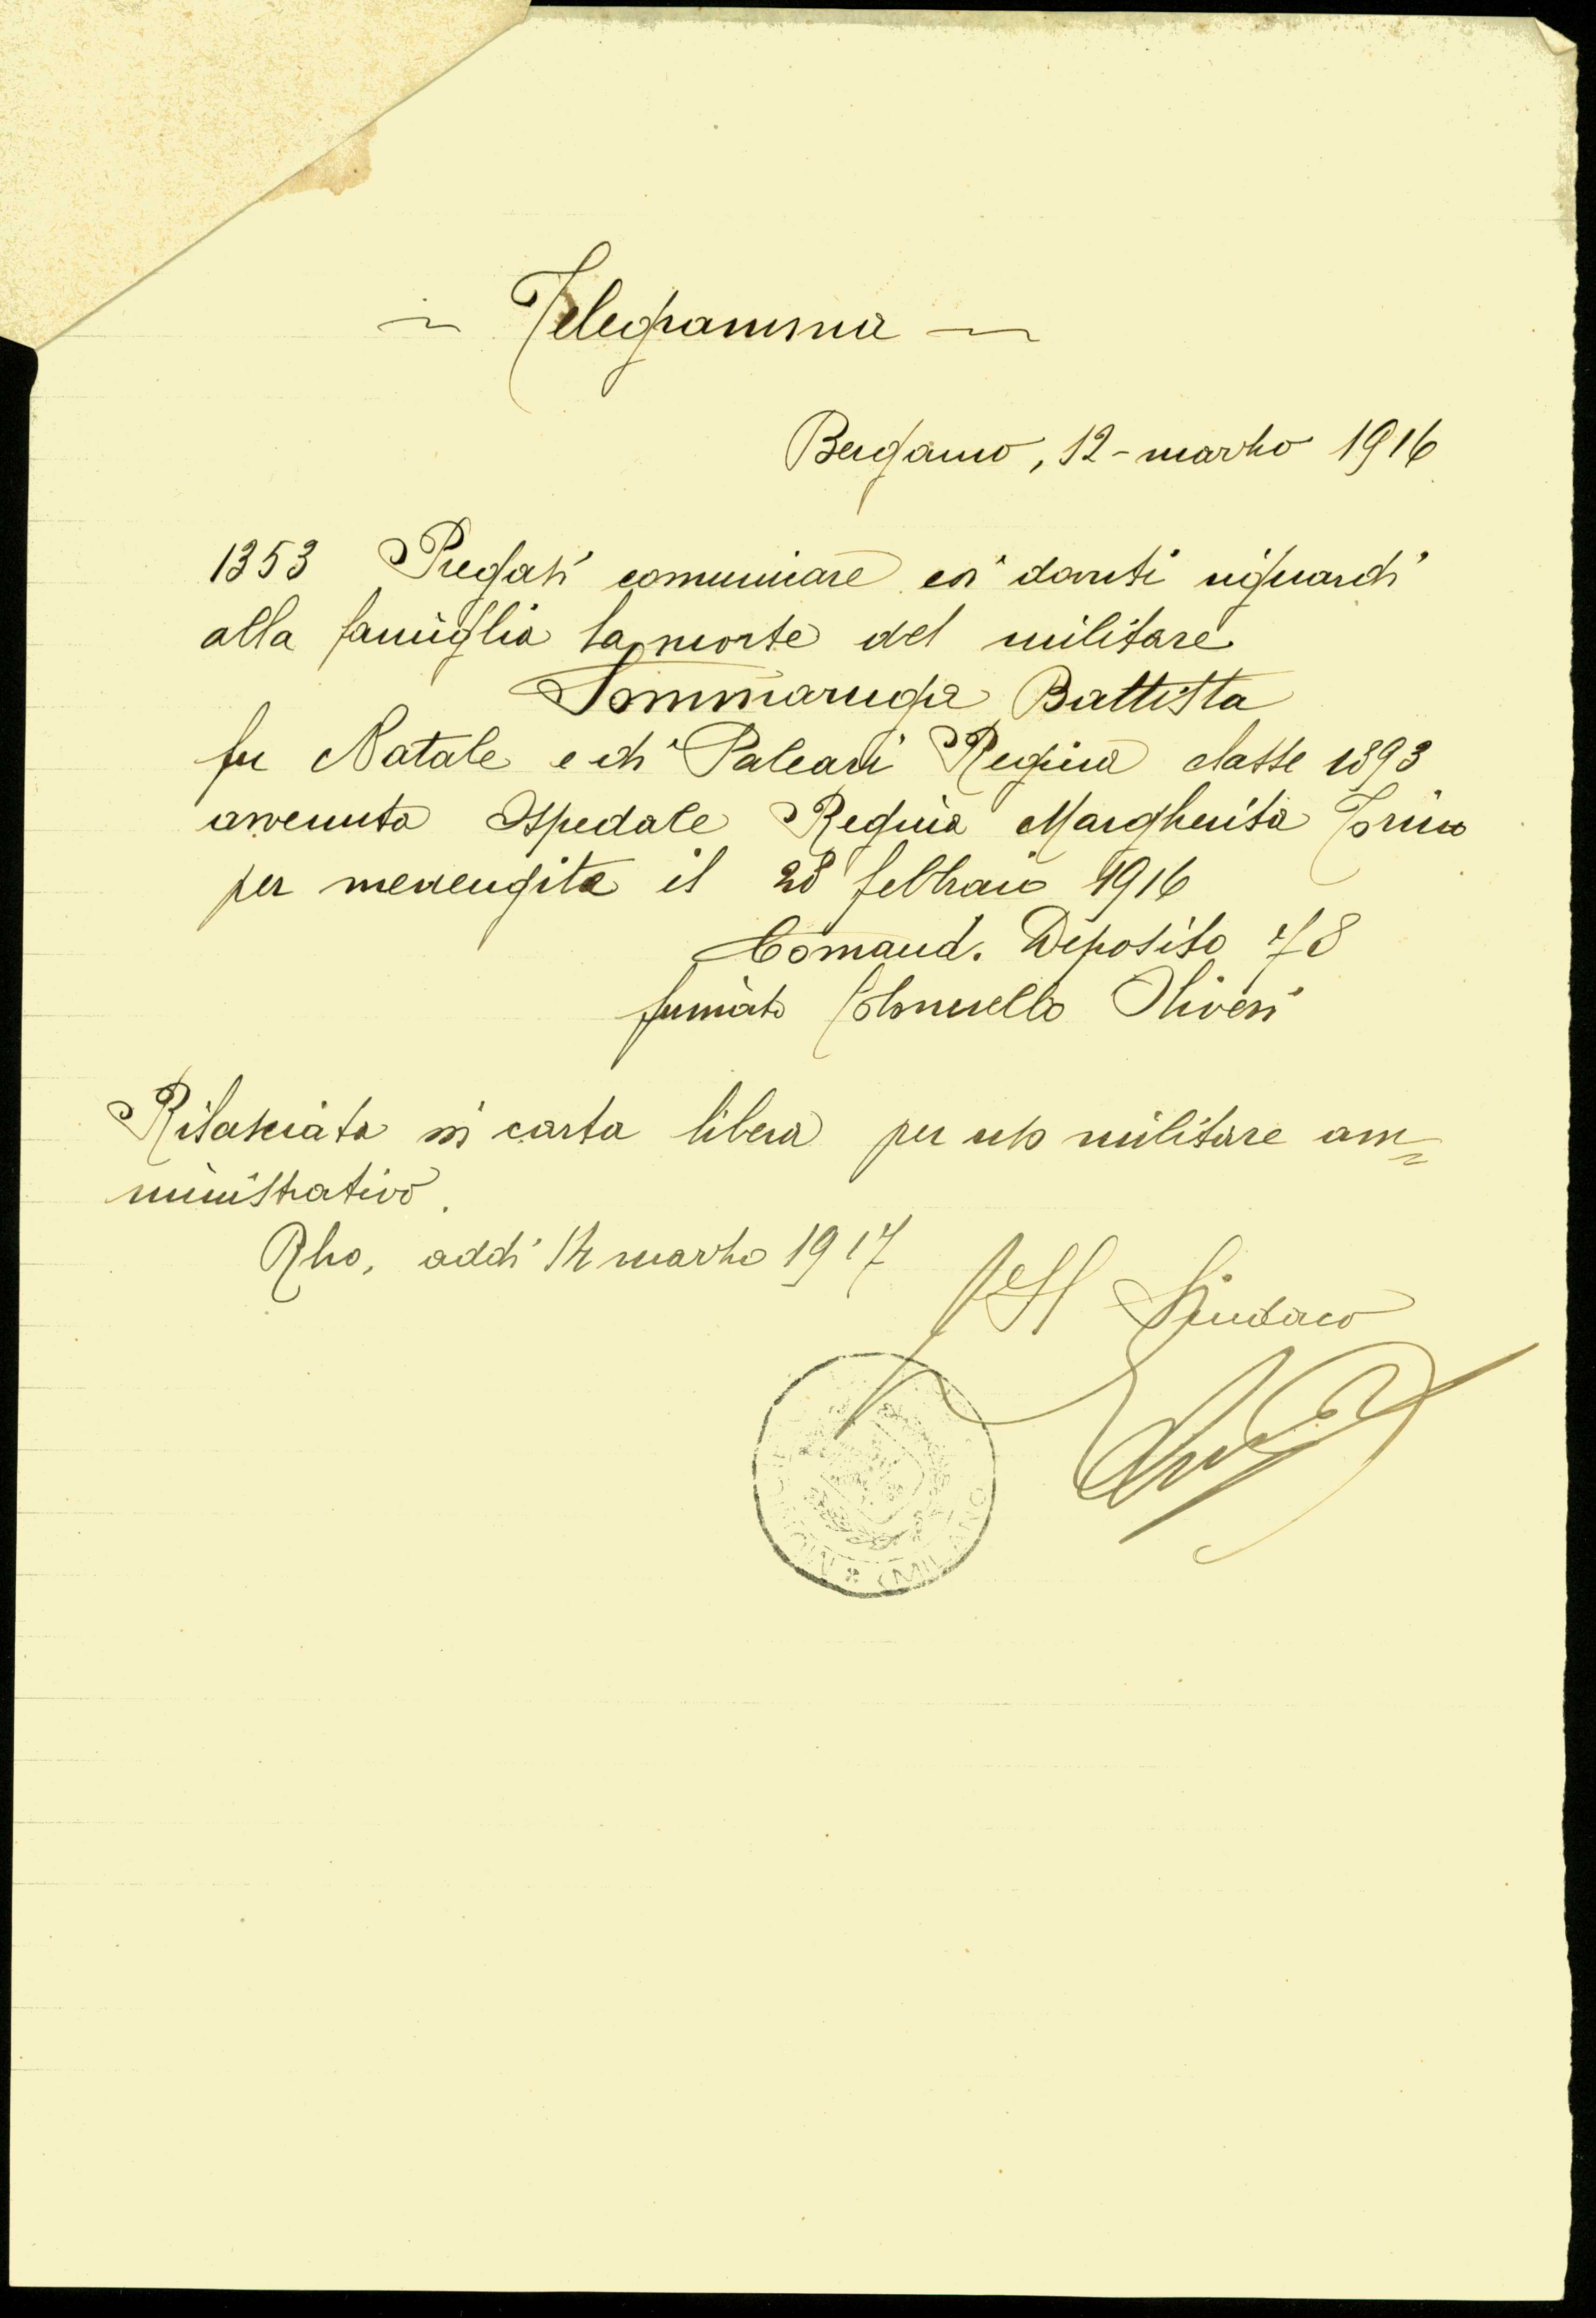 Telegramma
Bergamo, 12 - marzo 1916
1353 Pregasi comunicare coi dovuti riguardi
alla famiglia la morte del militare
Sommaruga Battista
fu Natale e di Paleari Regina classe 1893
avvenuta Ospedale Regina Margherita Torino
per menengite il 28 febbraio 1916
Comand. Deposito 78
firmato Colonnello Olivieri
Rilasciata in carta libera per uso militare am=
ministrativo.
Rho, addì 14 marzo 1917
Il Sindaco
(MILANO)